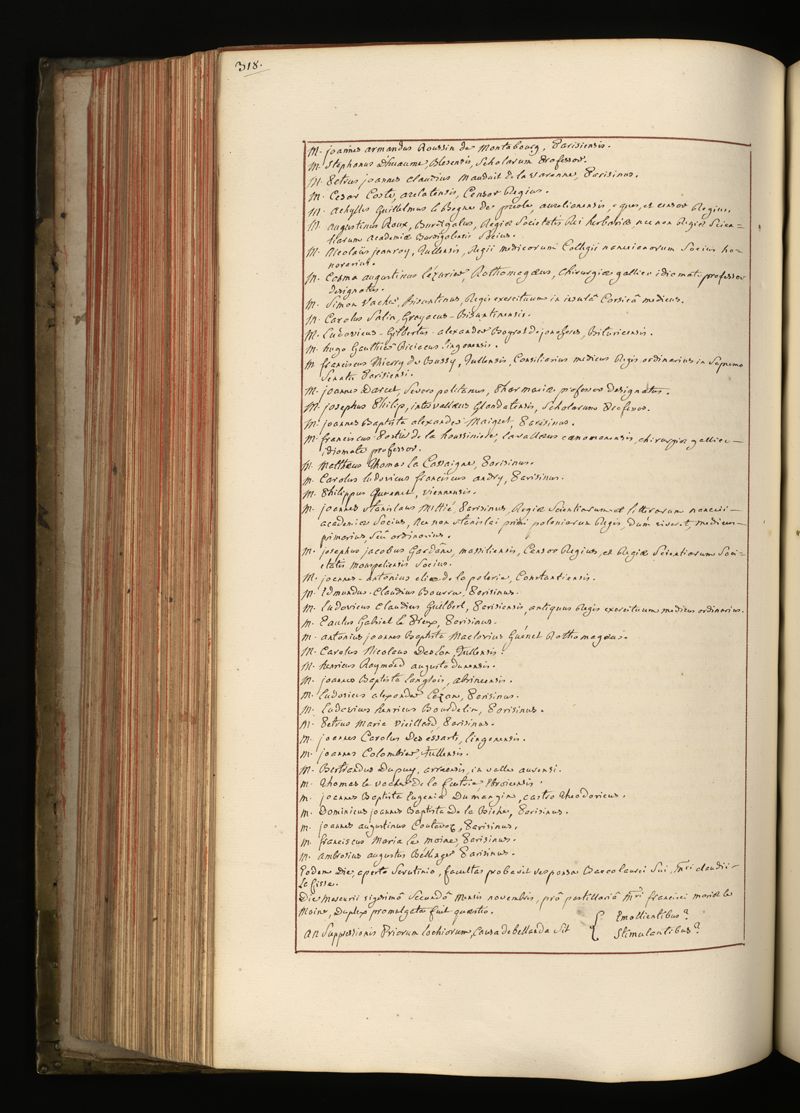 318.
M. joannes armandus Roussin de Montabourg, Parisiensis.
M. Stephanus Dhuaume, Blesensis, Scholarum Professor.
M. Petrus joannes claudius Mauduit de la Varenne, Parisinus.
M. Cesar Coste, arelatensis, Censor Regius.
M. achylles Guillelmus le Begue de presle, aurelianensis, eques, et censor Regius.
M. augustinus Roux, Burdigalus, Regiæ Societatis Rei herbariæ, nec non Regiæ Scien-
tiarum academiæ Burdigalensis Socius.
M. Nicolaüs jeanroy, Tullensis, Regii medicorum Collegii nanceianorum Socius ho-
norarius.
M. Cosma augustinus lezurier, Rothomagæus, chirurgiæ gallico idiomate professor
designatus.
M. Simon Vacher, Bisuntinus, Regis exercituum in insulâ Corsicâ medicus.
M. Carolus Salin, Grayaeus-Bisuntinensis.
M. Ludovicus-Gilbertus-alexander Boyrot de joncheres, Bituricensis.
M. hugo Gauthier Riciacus lingonensis.
M. franciscus Thierry de Bussy, Tullensis, Consiliarius medicus Regis ordinarius in Supremo
Senatu Parisiensi.
M. joannes Darcet, Severopolitanus, Pharmaciæ professor designatus.
M. josephus Philip, intervallæus Glandatensis, Scholarum Professor.
M. joannes Baptista alexander Maigret, Parisinus.
M. franciscus Postel de la houssiniere, lavallæus cœnomanensis, chirurgiæ gallico
idiomate professor.
M. Mattheus Thomas la Cassaigne, Parisinus.
M. Carolus ludovicus franciscus andry, Parisinus.
M. Philippus Guvenet, Viennensis.
M. joannes Stanislaus Mittié, Parisinus, Regiæ Scientiarum et litterarum nanceii
academiæ Socius, Nec non Stanislai primi poloniarum Regis, dum viveret, medicus
primarius, seu ordinarius.
M. josephus jacobus Gardâne, massiliensis, Censor Regius, et Regiæ Scientiarum Soci-
etatis Monspeliensis Socius.
M. joannes-antonius elias de la poterie, Constantiensis.
M. Edmundus-Claudius Bourru, Parisinus.
M. Ludovicus Claudius Guilbert, Parisiensis, antiquus Regis exercituum medicus ordinarius.
M. Paulus Gabriel le Preux, Parisinus.
M. antonius joannes Baptista Maclovius Guénet Rothomagæus.
M. Carolus Nicolaus Deslon, Tullensis.
M. henricus Raymond augustodunensis.
M. joannes Baptista langlois, abrincensis.
M. Ludovicus alexander Cézan, Parisinus.
M. Ludovicus henricus Bourdelin, Parisinus.
M. Petrus Maria Vieillard, Parisinus.
M. joannes Carolus Desessartz, lingonensis.
M. joannes Colombier, Tullensis.
M. Bertrandus Dupuy, arreensis, in valle aurensi.
M. Thomas le vacher de la feutrie,
M. joannes Baptista Eugenius Dumangin, castro Theodoricus.
M. Dominicus joannes Baptista De la Biche, Parisinus.
M. joannes augustinus Coutavoz, Parisinus.
M. franciscus Maria le moine, Parisinus.
M. ambrosius augustus Bellanger Parisinus.
Eodem Die, aperto Scrutinio, facultas probavit responsa Baccalaurei Sui, Mri claudii
la fisse.
Die Mercurii vigesimâ Secundâ Mensis novembris, prâ pastillariâ Mri francisci mariæ le
Moine, Duplex promulgata fuit quæstio.
An Suppressionis Priorum lochiorum, Causa debellanda Sit { Emollientibus?
Stimulantibus?